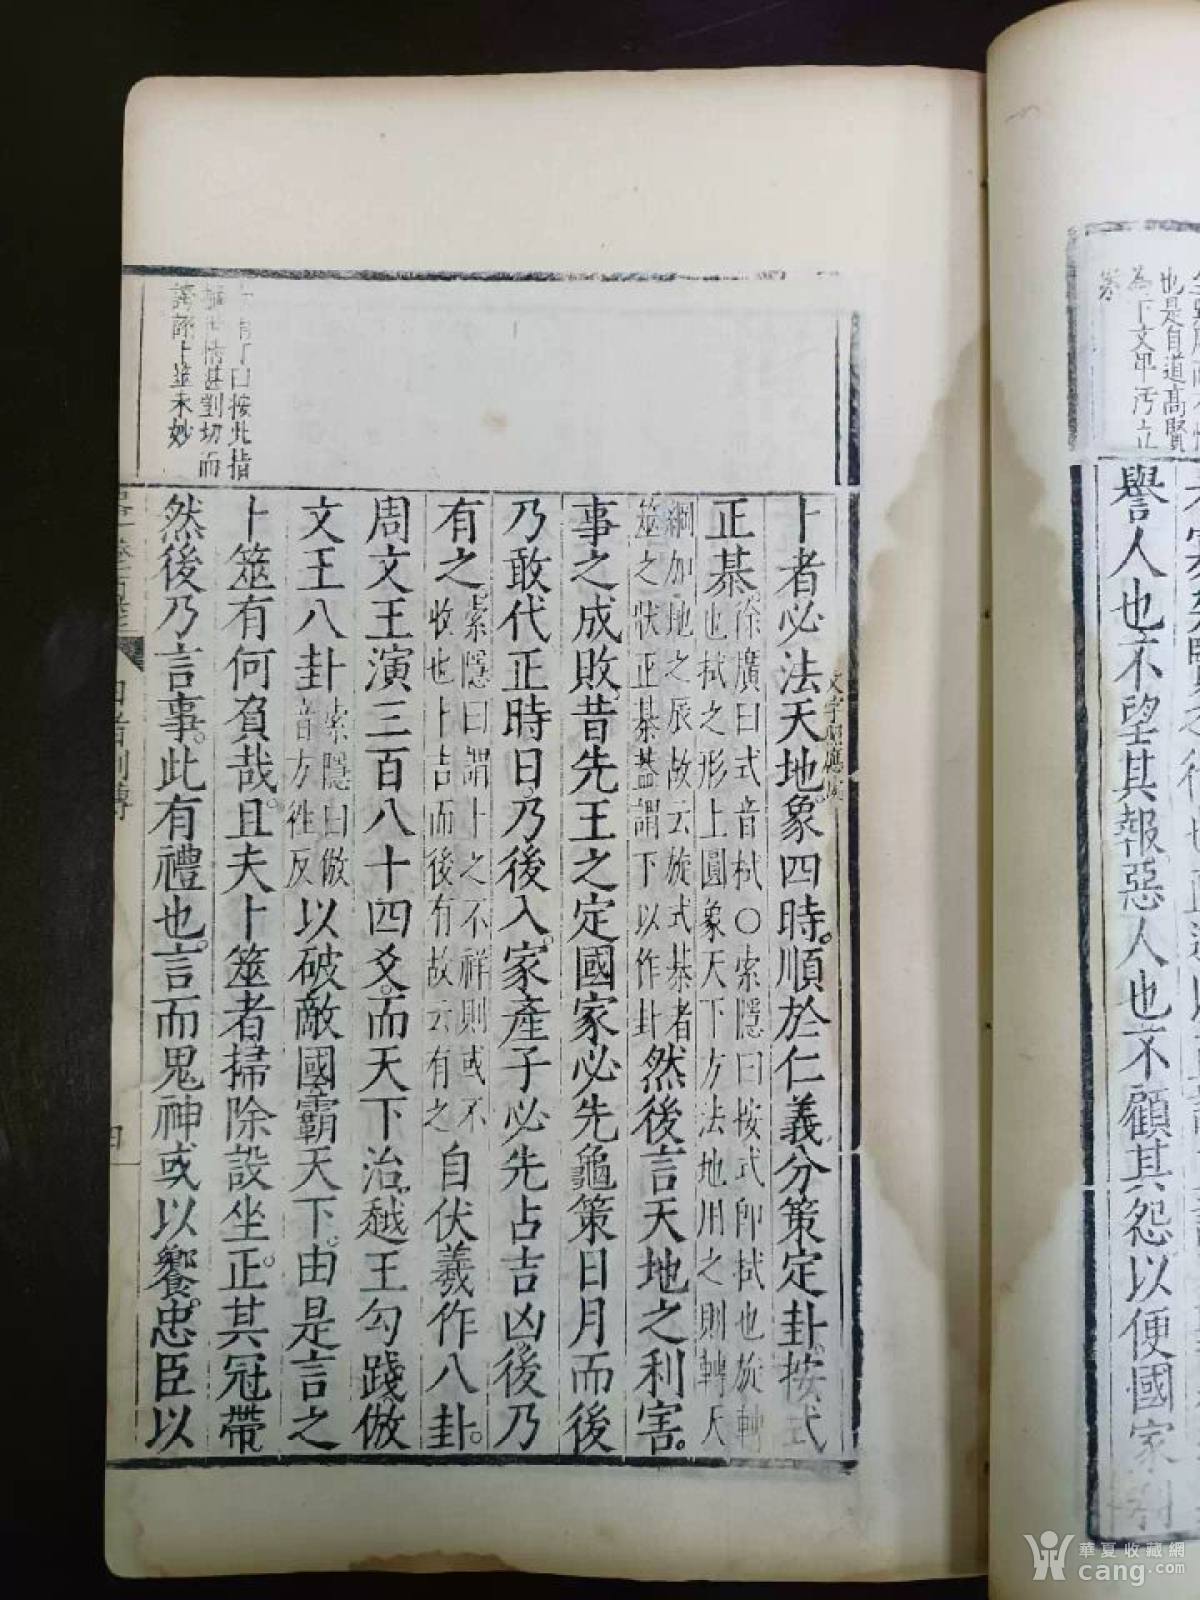 譽人也不望其報惡人也不顧其怨以便國家利
也是自道高賢
為下文卑汚立
案
卜者必法天地象四時順於仁義分策定卦按式
正棊徐廣曰式音栻〇索隱曰按式即栻也旋轉
也栻之形上圓象天下方法地用之則轉天
綱加地之辰故云旋式棊者
筮之狀正棊蓋謂下以作卦然後言天地之利害
事之成敗昔先王之定國家必先龜策日月而後
乃敢代正時日乃後入家產子必先占吉凶後乃
有之索隱曰謂卜之不祥則或不
收也卜吉而後有故云有之自伏羲作八卦
周文王演三百八十四爻而天下治越王勾踐倣
文王八卦索隱曰倣
音方徃反以破敵國霸天下由是言之
卜筮有何負哉且夫卜筮者掃除設坐正其冠帶
然後乃言事此有禮也言而鬼神或以饗忠臣以
曰按此指
情甚剴切而
卜筮未妙
日者列傳
四
華夏收藏網
cang.com